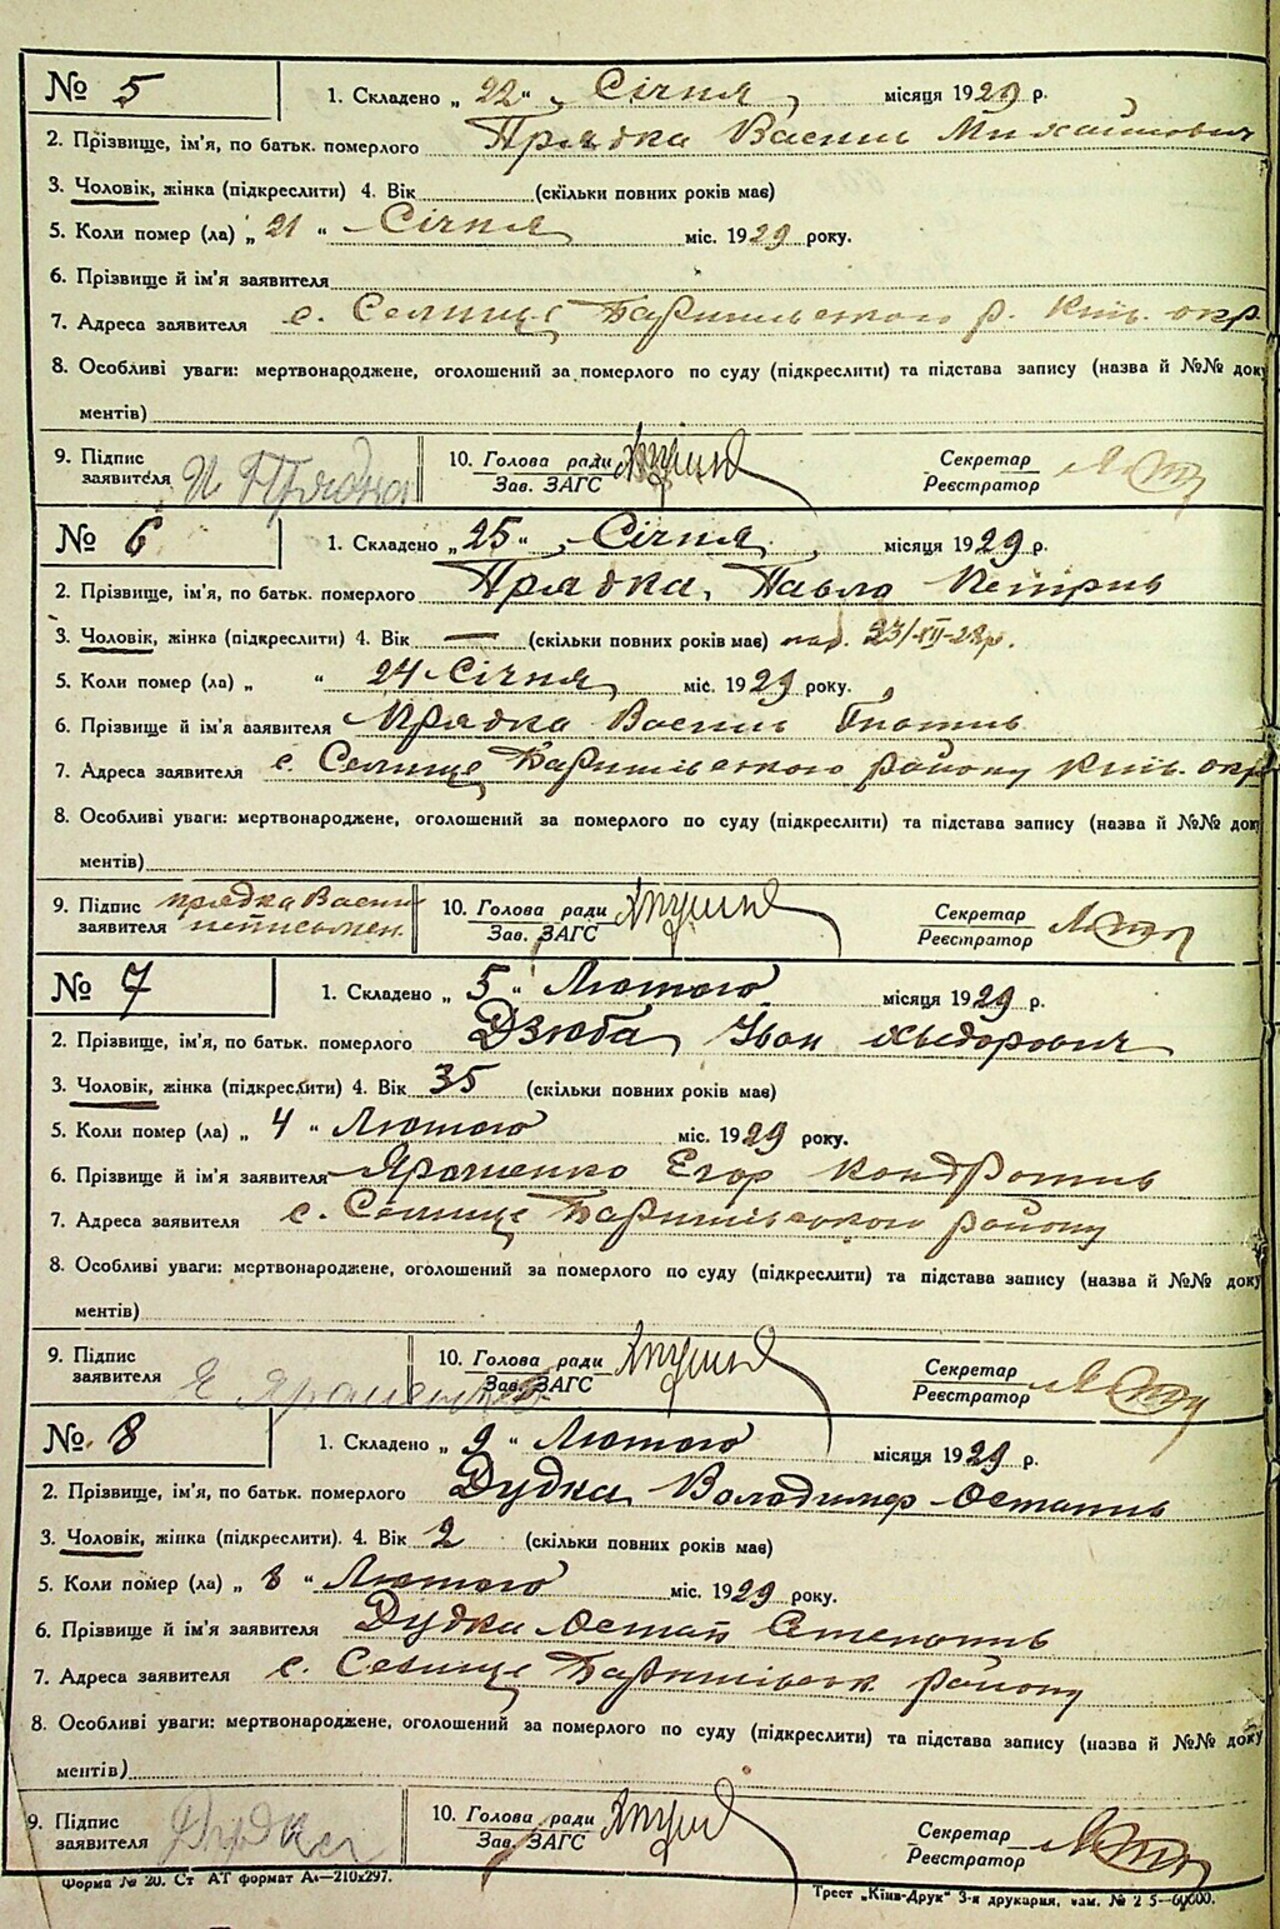 № 5 1. Складено „ 22 “ Січня місяця 1929 р.
2. Прізвище, ім'я, по батьк. померлого Прядка Василь Михайлович
3. Чоловік, жінка (підкреслити) 4. Вік (скільки повних років має)
5. Коли помер (ла) „ 21 “ Січня міс. 1929 року.
6. Прізвище й ім'я заявителя
7. Адреса заявителя с. Селище Баришівського р. Київ. окр.
8. Особливі уваги: мертвонароджене, оголошений за померлого по суду (підкреслити) та підстава запису (назва й №№ доку
ментів)
9. Підпис 10. Голова ради Секретар
заявителя Прядка Зав. ЗАГС Реєстратор
№ 6 1. Складено „ 25 “ Січня місяця 1929 р.
2. Прізвище, ім'я, по батьк. померлого Прядка Павло Петрив
3. Чоловік, жінка (підкреслити) 4. Вік — (скільки повних років має) нар. 23/-XII-28р.
5. Коли помер (ла) „ “ 24 Січня міс. 1929 року.
6. Прізвище й ім'я заявителя Прядка Василь Гнатив
7. Адреса заявителя с. Селище Баришівського району Київ. окр
8. Особливі уваги: мертвонароджене, оголошений за померлого по суду (підкреслити) та підстава запису (назва й №№ доку
ментів)
9. Підпис прядка Васил 10. Голова ради Секретар
заявителя неписьмен. Зав. ЗАГС Реєстратор
№ 7 1. Складено „ 5 “ Лютого місяця 1929 р.
2. Прізвище, ім'я, по батьк. померлого Дзюба Іван
3. Чоловік, жінка (підкреслити) 4. Вік 35 (скільки повних років має)
5. Коли помер (ла) „ 4 “ Лютого міс. 1929 року.
6. Прізвище й ім'я заявителя Ярошенко Егор Кондратив
7. Адреса заявителя с. Селище Баришівського району
8. Особливі уваги: мертвонароджене, оголошений за померлого по суду (підкреслити) та підстава запису (назва й №№ доку
ментів)
9. Підпис 10. Голова ради Секретар
заявителя Зав. ЗАГС Реєстратор
№ 8 1. Складено „ 9 “ Лютого місяця 1929 р.
2. Прізвище, ім'я, по батьк. померлого Дудка Володимер Остапив
3. Чоловік, жінка (підкреслити). 4. Вік 2 (скільки повних років має)
5. Коли помер (ла) „ 8 “ Лютого міс. 1929 року.
6. Прізвище й ім'я заявителя Дудка Остап Степанив
7. Адреса заявителя с. Селище Баришівськ. району
8. Особливі уваги: мертвонароджене, оголошений за померлого по суду (підкреслити) та підстава запису (назва й №№ доку
ментів)
9. Підпис 10. Голова ради Секретар
заявителя Дудка Зав. ЗАГС Реєстратор
Форма № 20. Ст АТ формат А4—210х297.
Трест „Київ-Друк“ 3-я друкарня, зам. №